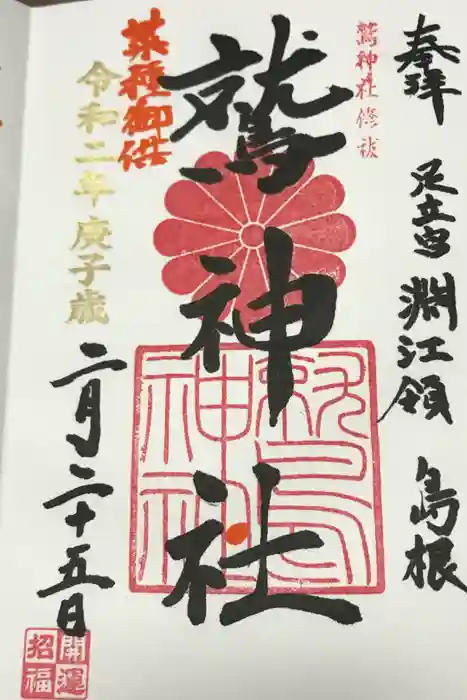 奉拝 足立宮 淵江領 島根
鷲神社修祓
鷲神社
菜種御供
令和二年庚子歳
二月二十五日
開運
招福